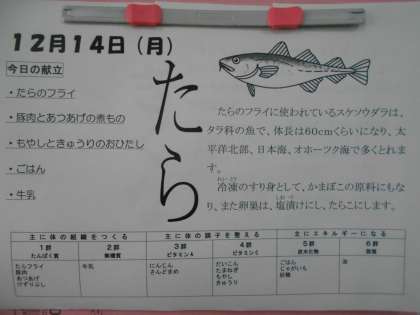 12月14日（月）
今日の献立
・たらのフライ
・豚肉とあつあげの煮もの
・もやしときゅうりのおひたし
・ごはん
・牛乳
たら
たらのフライに使われているスケソウダラは、
タラ科の魚で、体長は60cmくらいになり、太
平洋北部、日本海、オホーツク海で多くとれま
す。
冷凍のすり身として、かまぼこの原料にもな
り、また卵巣は、塩漬けにし、たらこにします。
主に体の組織をつくる 主に体の調子を整える 主にエネルギーになる
1群 2群 3群 4群 5群 6群
たんぱく質 無機質 ビタミンA ビタミンC 炭水化物 脂肪
たらフライ 牛乳 にんじん だいこん ごはん 油
豚肉 さんどまめ たまねぎ じゃがいも
あつあげ もやし 砂糖
けずりぶし きゅうり